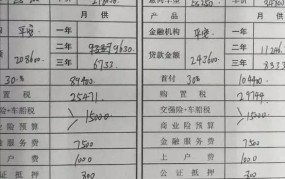 月供
产品
月供
平安
一年
金融机构
平安
一年
二年
9630
二年
208600
三年
6733
贷款金额
243600
三年
8333
30%
89400
首付
30%
104400
购置税
25471
购置税
29744
险+车船税
15000
交强险+车船税
15000
业险预算
商业险预算
金融服务费
7500
金融服务费
7500
上户费
1000
上户费
1000
公证抵押
300
公证抵押
300